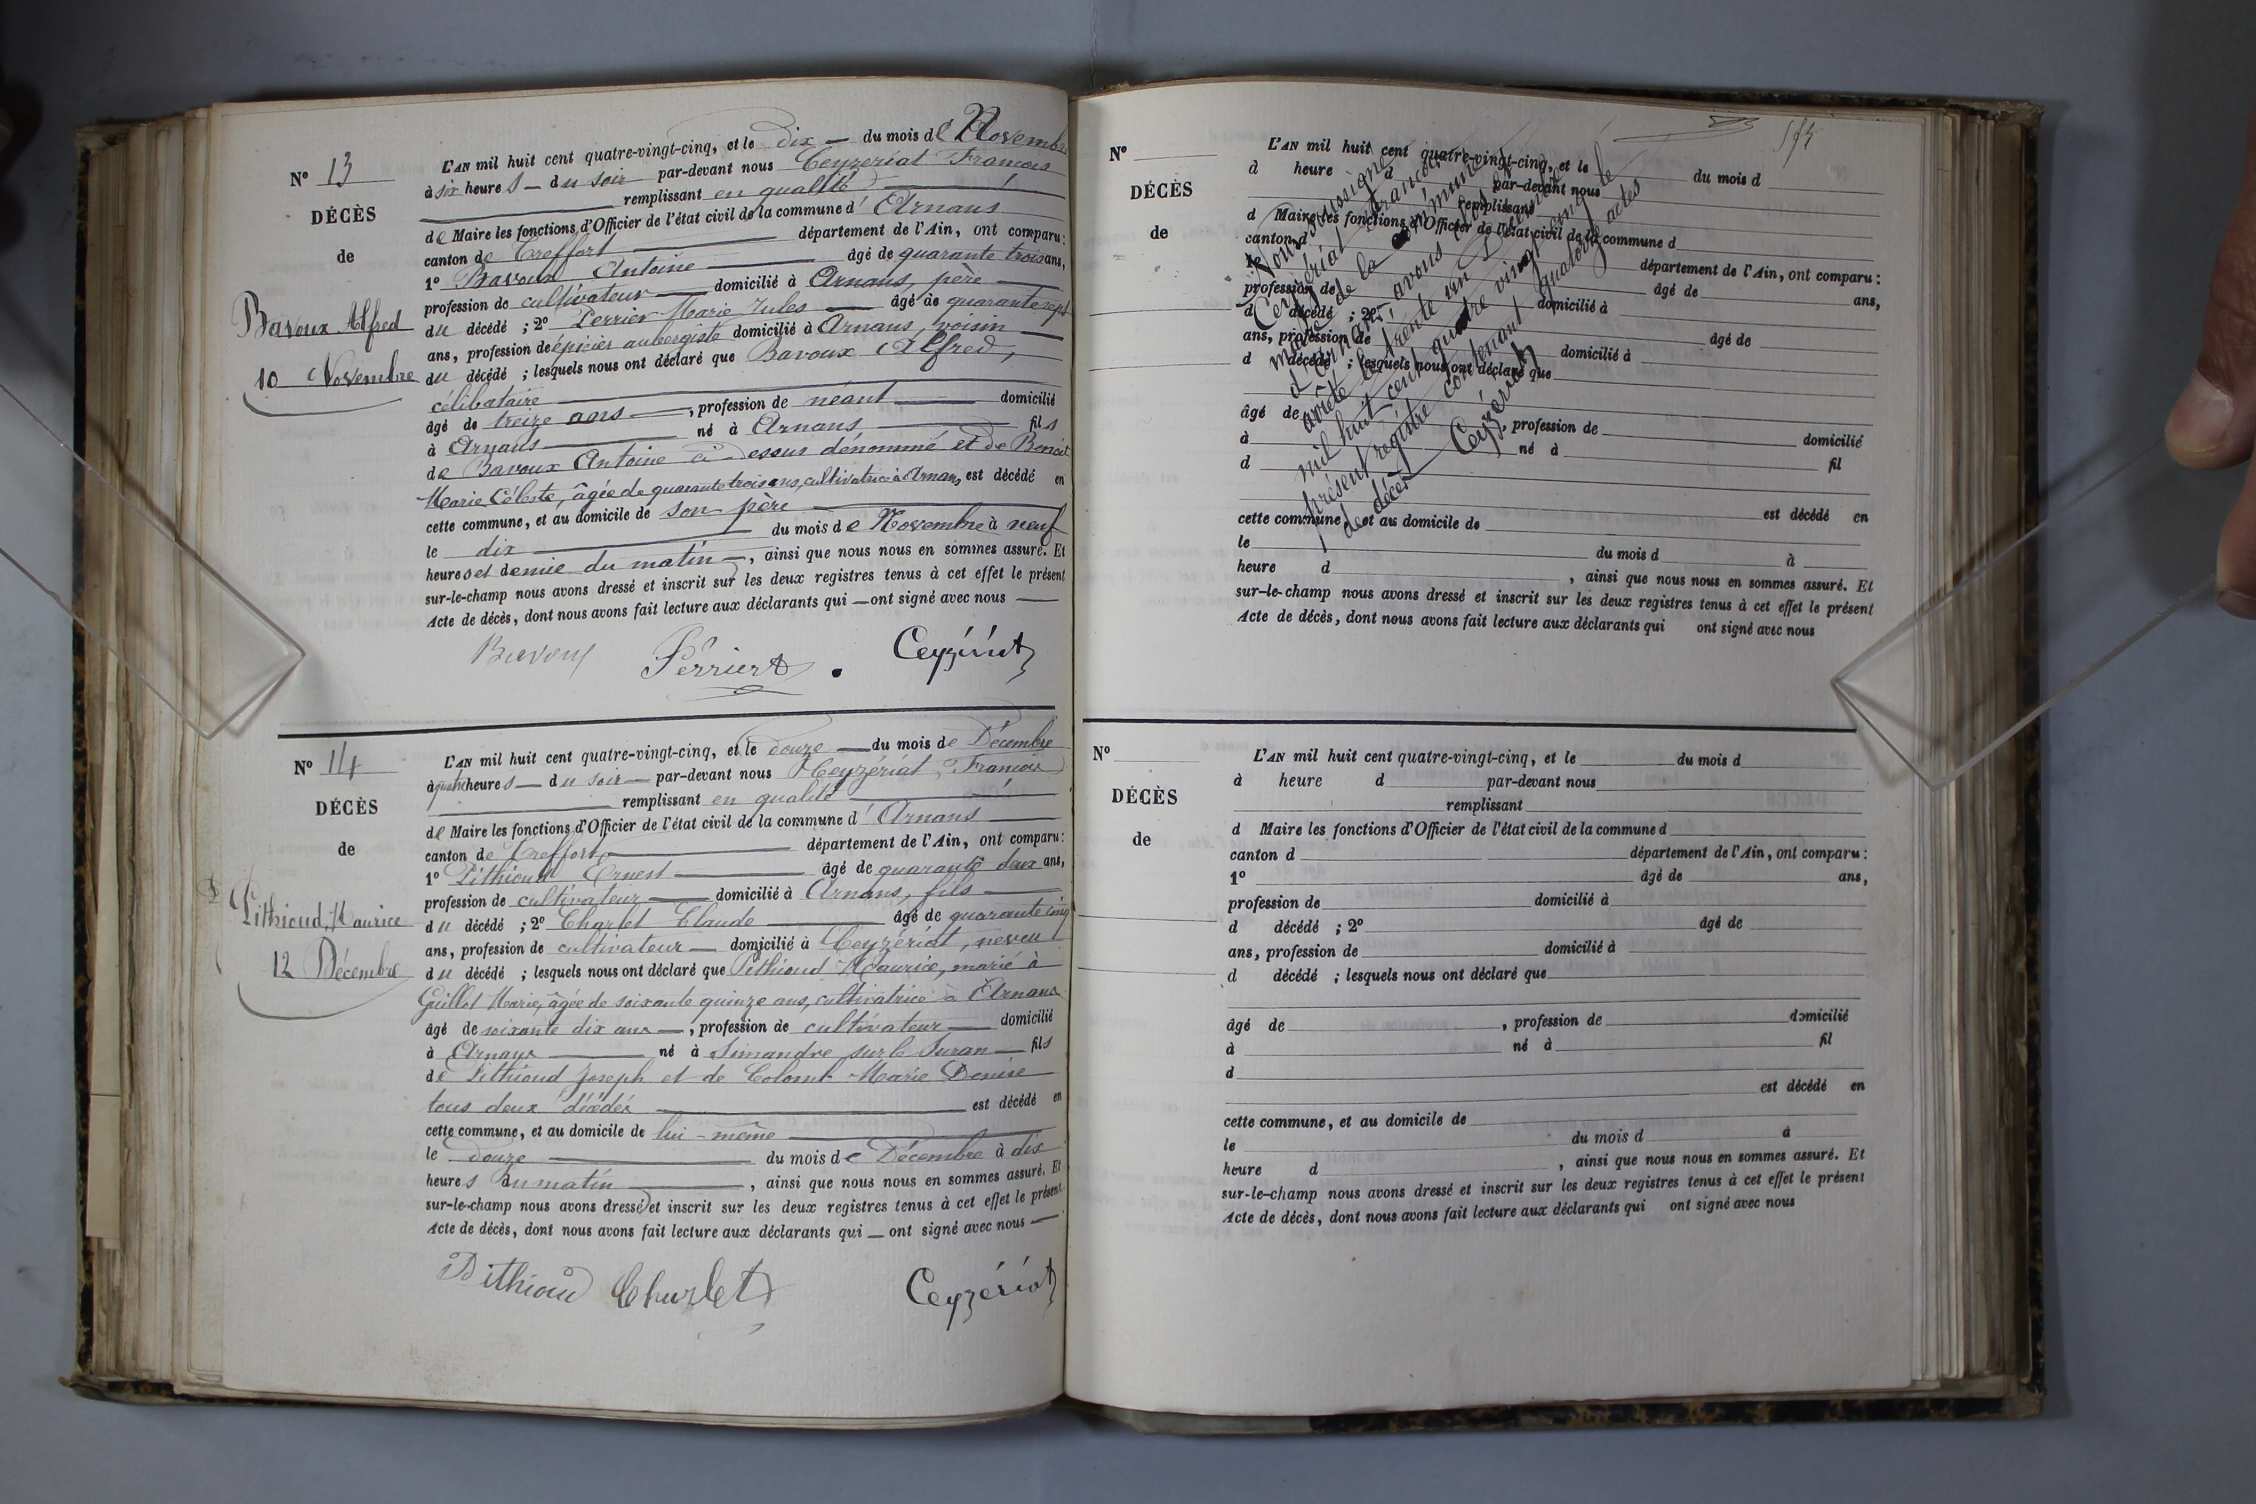 N° 13
DÉCÈS
de
Bavoux Alfred
10 Novembre
L'AN mil huit cent quatre-vingt-cinq, et le dix — du mois de Novembre
à six heures — du soir par-devant nous Ceyzériat François
remplissant en qualité
de Maire les fonctions d'Officier de l'état civil de la commune d'Arnans
canton de Treffort département de l'Ain, ont comparu :
1° Bavoux Antoine âgé de quarante trois ans,
profession de cultivateur domicilié à Arnans, père
du décédé ; 2° Perrier Marie Jules âgé de quarante sept
ans, profession de épicier aubergiste domicilié à Arnans, voisin
du décédé ; lesquels nous ont déclaré que Bavoux Alfred,
célibataire
âgé de treize ans —, profession de néant domicilié
à Arnans né à Arnans fils
de Bavoux Antoine ci-dessus dénommé et de Benoit
Marie Céleste, âgée de quarante trois ans, cultivatrice à Arnans, est décédé en
cette commune, et au domicile de son père
le dix du mois de Novembre à neuf
heures et demie du matin —, ainsi que nous nous en sommes assuré. Et
sur-le-champ nous avons dressé et inscrit sur les deux registres tenus à cet effet le présent
Acte de décès, dont nous avons fait lecture aux déclarants qui — ont signé avec nous —
Bavoux Perrier Ceyzériat
N° 14
DÉCÈS
de
Pithioud Maurice
12 Décembre
L'AN mil huit cent quatre-vingt-cinq, et le douze — du mois de Décembre
à quatre heures — du soir — par-devant nous Ceyzériat François
remplissant en qualité
de Maire les fonctions d'Officier de l'état civil de la commune d'Arnans
canton de Treffort département de l'Ain, ont comparu :
1° Pithioud Ernest âgé de quarante deux ans,
profession de cultivateur domicilié à Arnans, fils
du décédé ; 2° Charlet Claude âgé de quarante cinq
ans, profession de cultivateur — domicilié à Ceyzériat, neveu
du décédé ; lesquels nous ont déclaré que Pithioud Maurice, marié à
Guillot Marie, âgée de soixante quinze ans, cultivatrice à Arnans
âgé de soixante dix ans —, profession de cultivateur domicilié
à Arnans né à Simandre sur le Suran — fils
de Pithioud Joseph et de Colomb Marie Denise
tous deux décédés est décédé en
cette commune, et au domicile de lui-même
le douze du mois de Décembre à dix
heures du matin, ainsi que nous nous en sommes assuré. Et
sur-le-champ nous avons dressé et inscrit sur les deux registres tenus à cet effet le présent
Acte de décès, dont nous avons fait lecture aux déclarants qui — ont signé avec nous —
Pithioud Charlet Ceyzériat
N°
DÉCÈS
de
L'AN mil huit cent quatre-vingt-cinq, et le du mois d
à heure d par-devant nous
remplissant
d Maire les fonctions d'Officier de l'état civil de la commune d
canton d département de l'Ain, ont comparu :
1° âgé de ans,
profession de domicilié à
d décédé ; 2° âgé de
ans, profession de domicilié à
d décédé ; lesquels nous ont déclaré que
âgé de , profession de domicilié
à né à fil
d
est décédé en
cette commune, et au domicile de
le du mois d à
heure d , ainsi que nous nous en sommes assuré. Et
sur-le-champ nous avons dressé et inscrit sur les deux registres tenus à cet effet le présent
Acte de décès, dont nous avons fait lecture aux déclarants qui ont signé avec nous
Nous soussigné
Ceyzériat François
maire de la commune
d'Arnans, avons clos et
arrêté le trente un Décembre
mil huit cent quatre vingt cinq le
présent registre contenant quatorze actes
de décès Ceyzériat
N°
DÉCÈS
de
L'AN mil huit cent quatre-vingt-cinq, et le du mois d
à heure d par-devant nous
remplissant
d Maire les fonctions d'Officier de l'état civil de la commune d
canton d département de l'Ain, ont comparu :
1° âgé de ans,
profession de domicilié à
d décédé ; 2° âgé de
ans, profession de domicilié à
d décédé ; lesquels nous ont déclaré que
âgé de , profession de domicilié
à né à fil
d
est décédé en
cette commune, et au domicile de
le du mois d à
heure d , ainsi que nous nous en sommes assuré. Et
sur-le-champ nous avons dressé et inscrit sur les deux registres tenus à cet effet le présent
Acte de décès, dont nous avons fait lecture aux déclarants qui ont signé avec nous